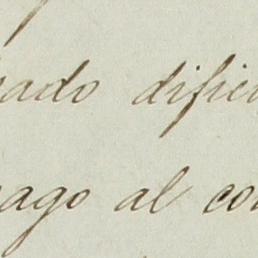 ado dific
ago al co